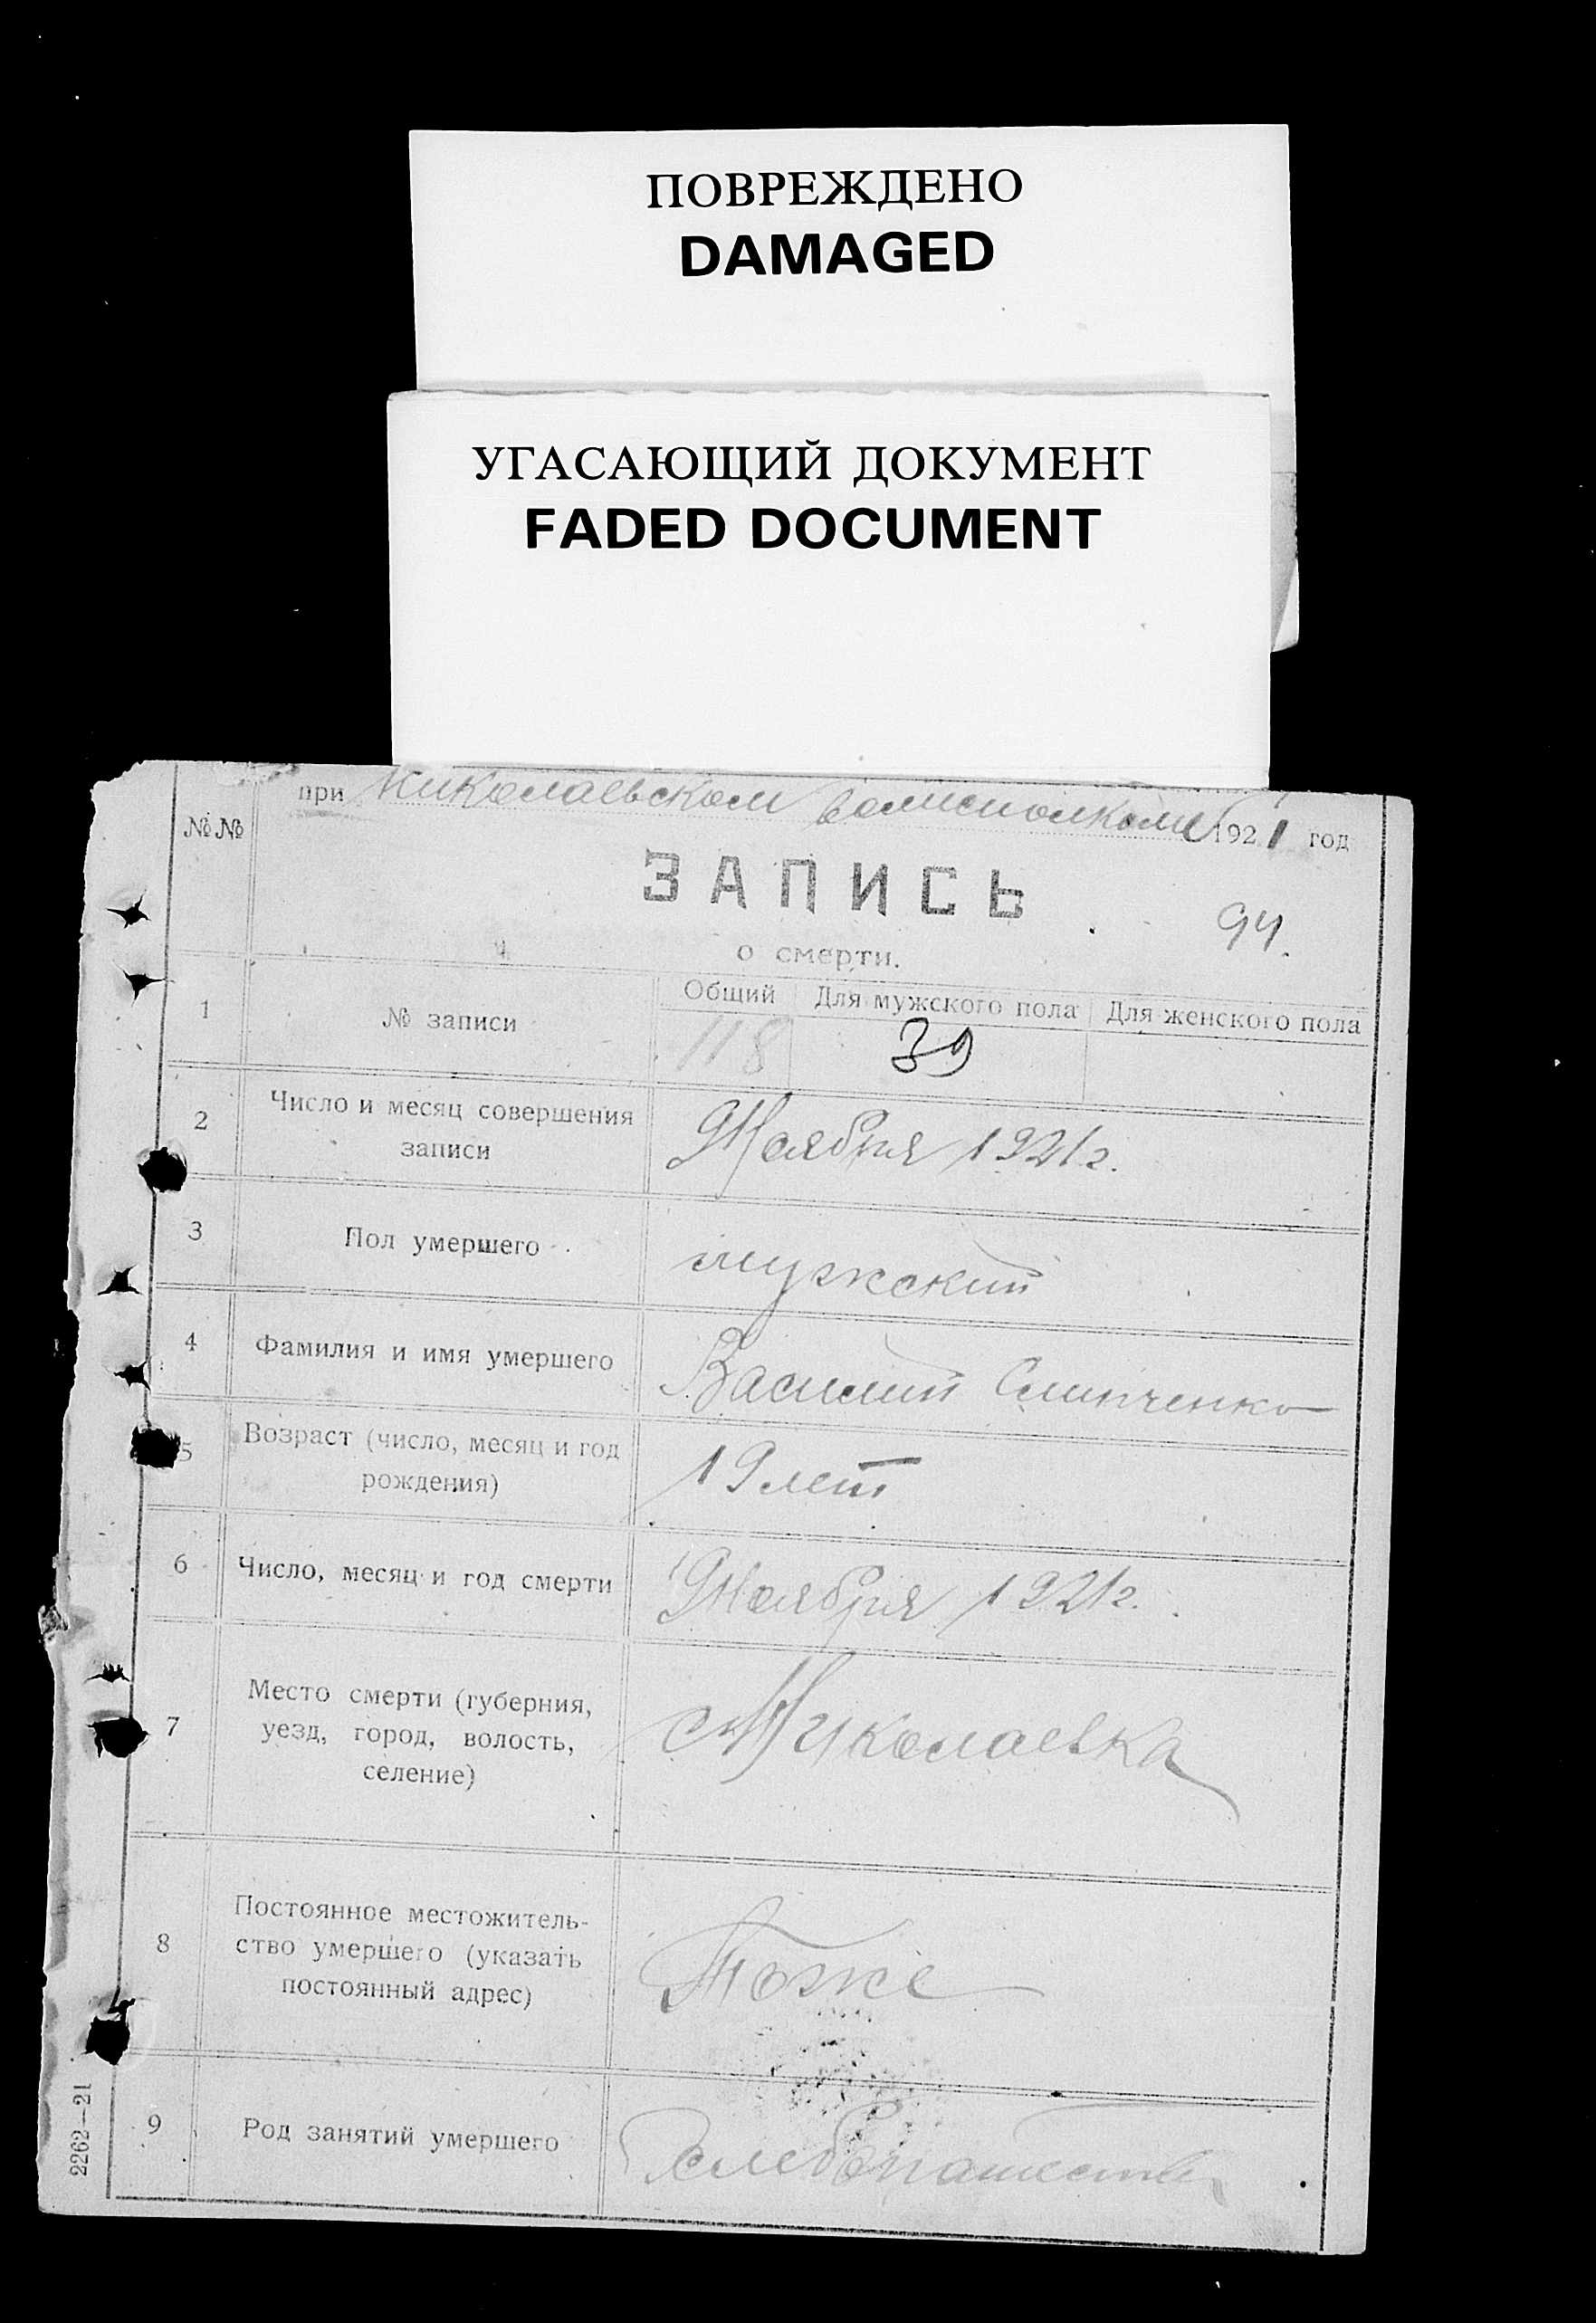 ПОВРЕЖДЕНО
DAMAGED
УГАСАЮЩИЙ ДОКУМЕНТ
FADED DOCUMENT
при Николаевском волисполкоме 1921 год
№№
ЗАПИСЬ
94.
о смерти.
1 № записи Общий Для мужского пола Для женского пола
118 39
2 Число и месяц совершения
записи
9 Ноября 1921 г.
3 Пол умершего мужской
4 Фамилия и имя умершего Василий Слипченко
5 Возраст (число, месяц и год
рождения)
19 лет
6 Число, месяц и год смерти 9 Ноября 1921 г.
7 Место смерти (губерния,
уезд, город, волость,
селение)
с. Николаевка
8 Постоянное местожитель-
ство умершего (указать
постоянный адрес)
Тоже
9 Род занятий умершего Хлебопашество
2262—21